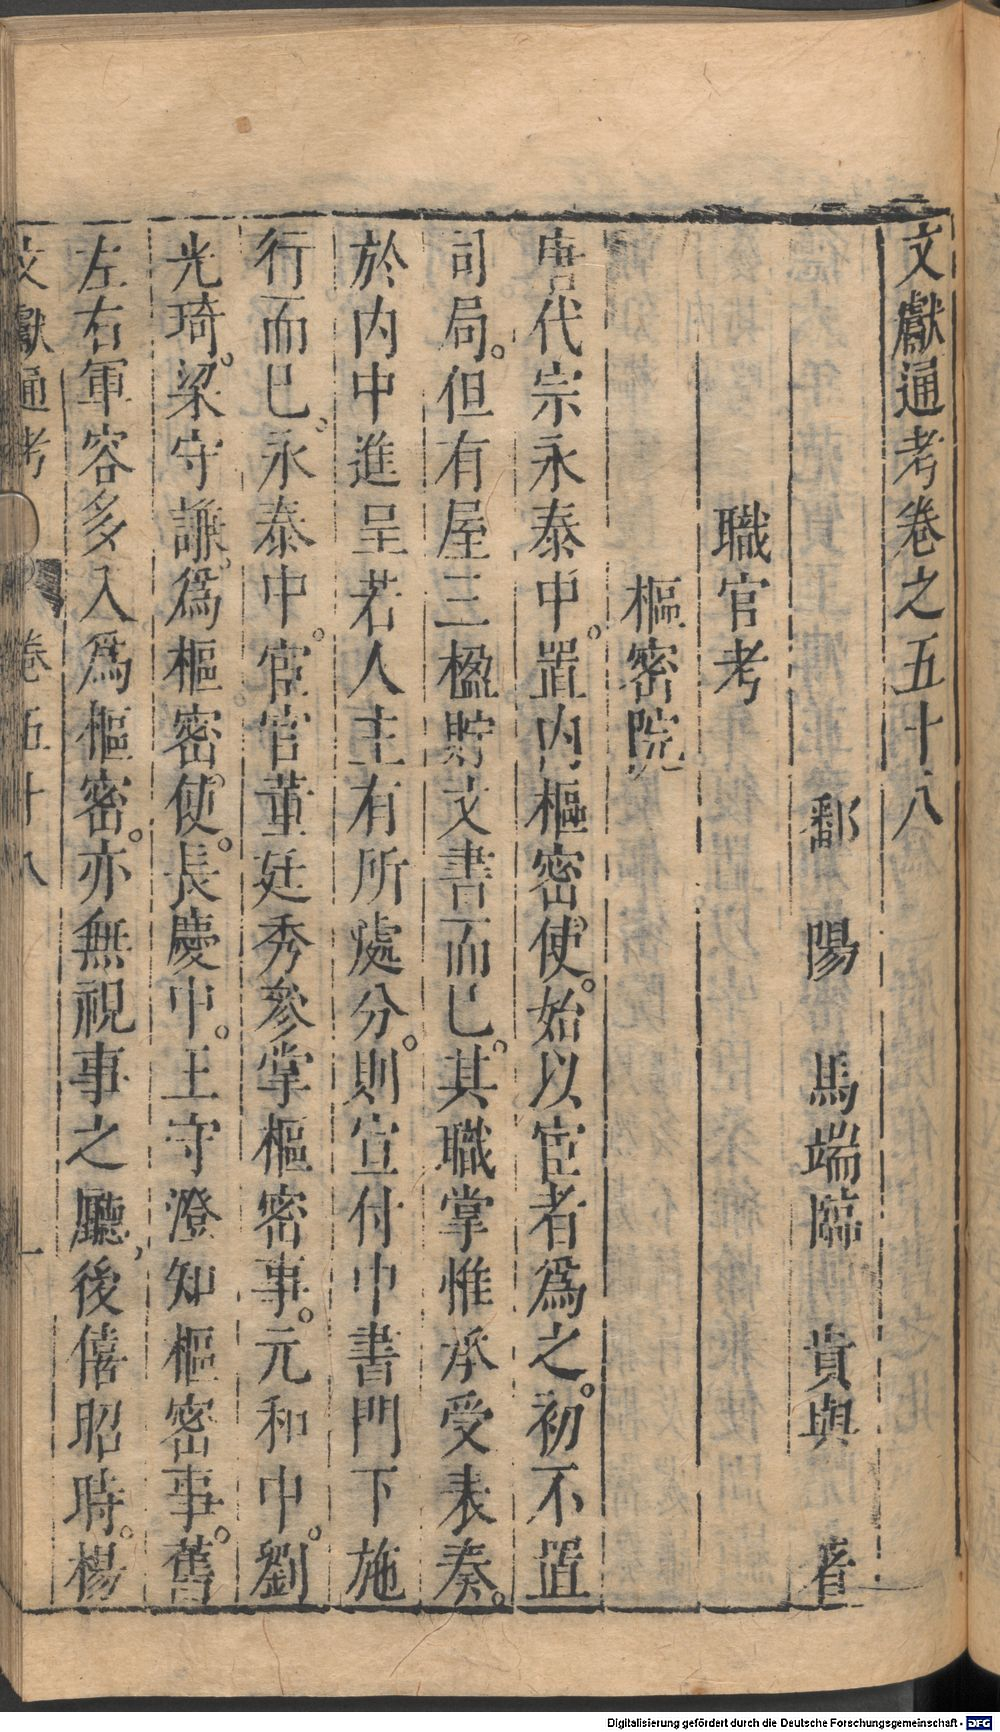 文獻通考卷之五十八
鄱陽 馬端臨 貴與 著
職官考
樞密院
唐代宗永泰中。置內樞密使。始以宦者爲之。初不置
司局。但有屋三楹貯文書而已。其職掌惟承受表奏。
於內中進呈若人主有所處分。則宣付中書門下施
行而已。永泰中。宦官董廷秀參掌樞密事。元和中。劉
光琦。梁守謙。爲樞密使。長慶中。王守澄知樞密事。舊
左右軍容多入爲樞密。亦無視事之廳，後僖昭時。楊
文獻通考 卷五十八 一
Digitalisierung gefördert durch die Deutsche Forschungsgemeinschaft - DFG